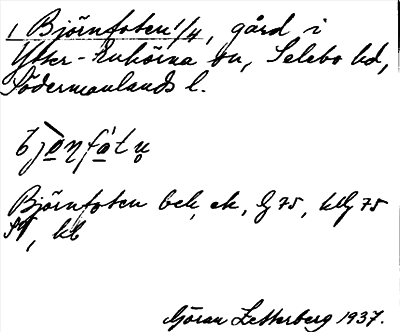 1 Björnfoten 1/4, gård i
Ytter-Enhörna sn, Selebo hd,
Södermanlands l.
Björnfoten bek, ek, G 75, hdg 75
kb
Göran Zetterberg 1937.